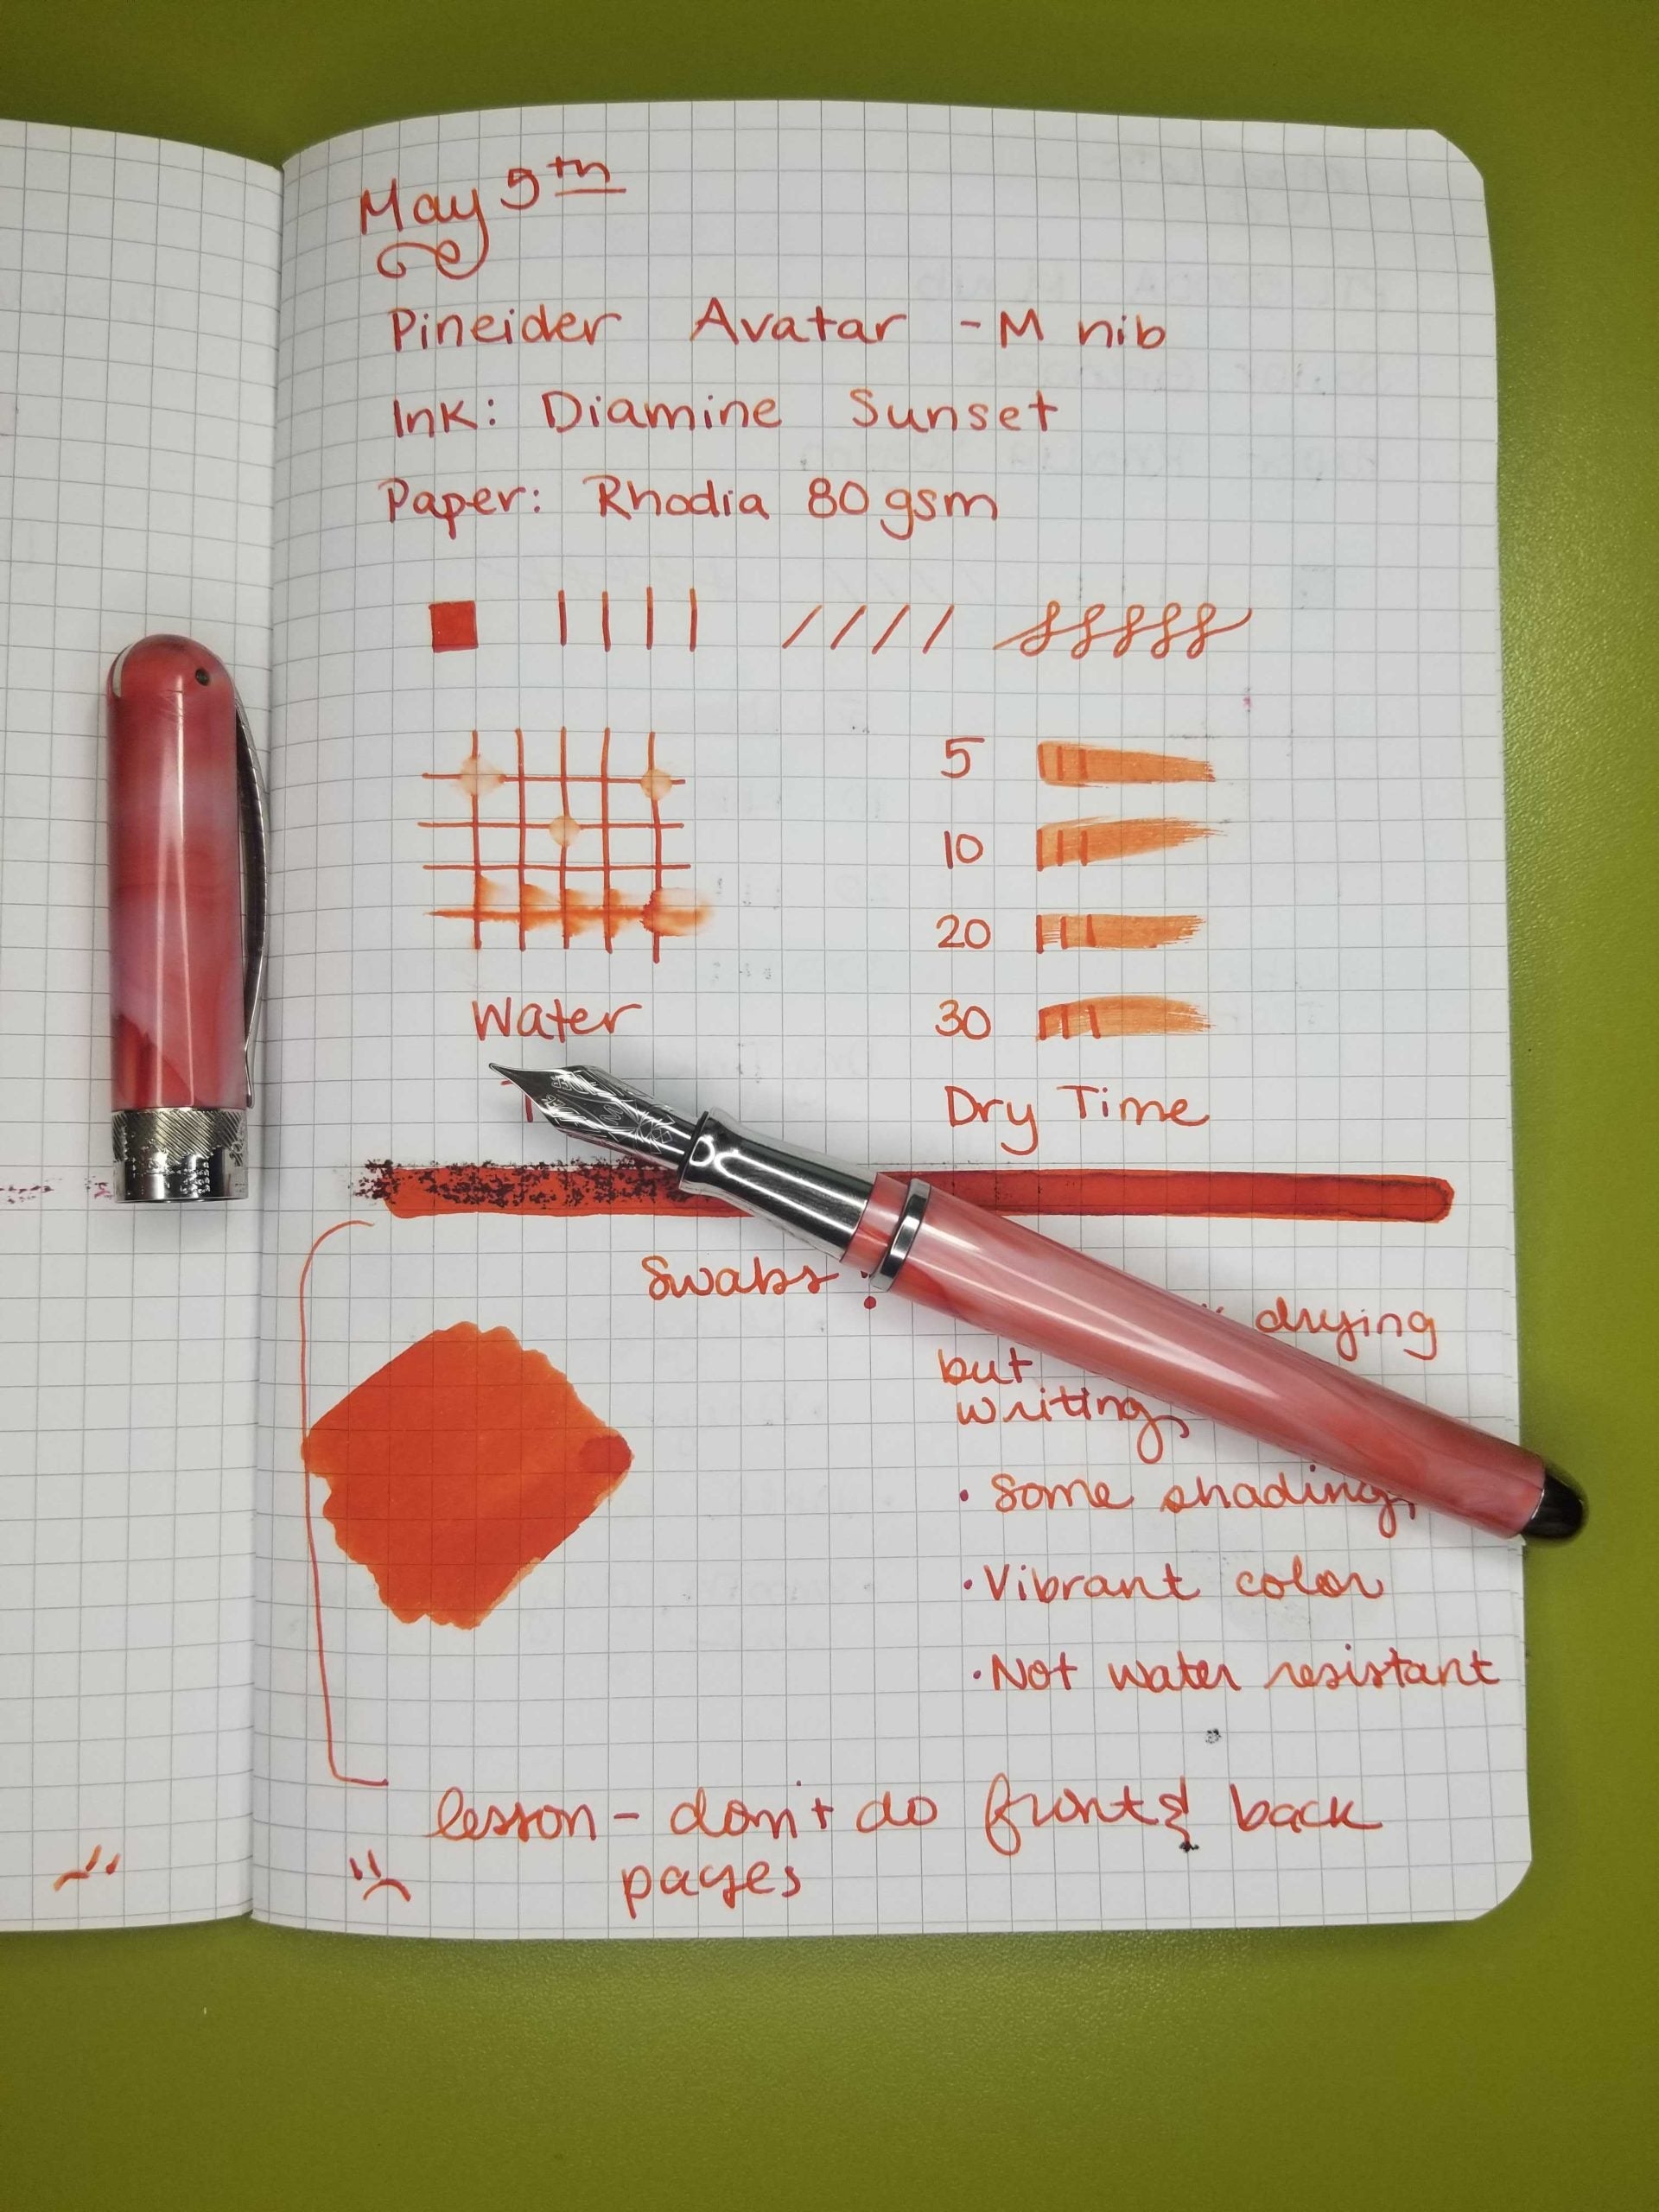 May 5th
Pineider Avatar - M nib
Ink: Diamine Sunset
Paper: Rhodia 80 gsm
5
10
20
30
Water
Dry Time
Swabs :
drying
but
writing
• Some shading
• Vibrant color
• Not water resistant
lesson - don't do front & back
pages